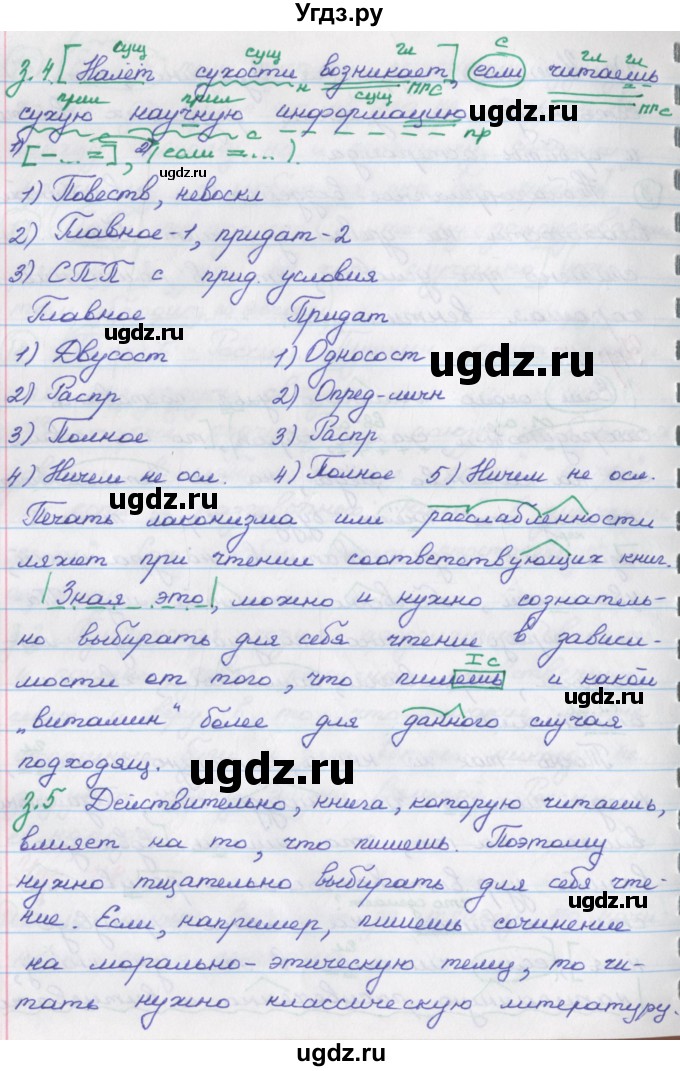 Угдз.ру
сущ сущ гл с гл гл
з.4 [Налёт сухости возникает], если читаешь
прил н прил сущ ПГС ПГС
сухую научную информацию
с с пр
1) [- ... =], 2) (если = ...).
ugdz.ru
1) Повеств, невоскл
2) Главное-1, придат-2
ugdz.ru
3) СПП с прид. условия
Главное Придат
ugdz.ru
1) Двусост 1) Односост
ugdz.ru
2) Распр 2) Опред-личн
3) Полное 3) Распр
4) Ничем не осл. 4) Полное 5) Ничем не осл.
ugdz.ru
Печать лаконизма или расслабленности
ляжет при чтении соответствующих книг.
Зная это, можно и нужно сознатель-
но выбирать для себя чтение в зависи-
I с
мости от того, что пишешь и какой
ugdz.ru
„витамин“ более для данного случая
подходящ.
ugdz.ru
з.5 Действительно, книга, которую читаешь,
влияет на то, что пишешь. Поэтому
нужно тщательно выбирать для себя чте-
ние. Если, например, пишешь сочинение
ugdz.ru
на морально-этическую тему, то чи-
тать нужно классическую литературу.
ugdz.ru